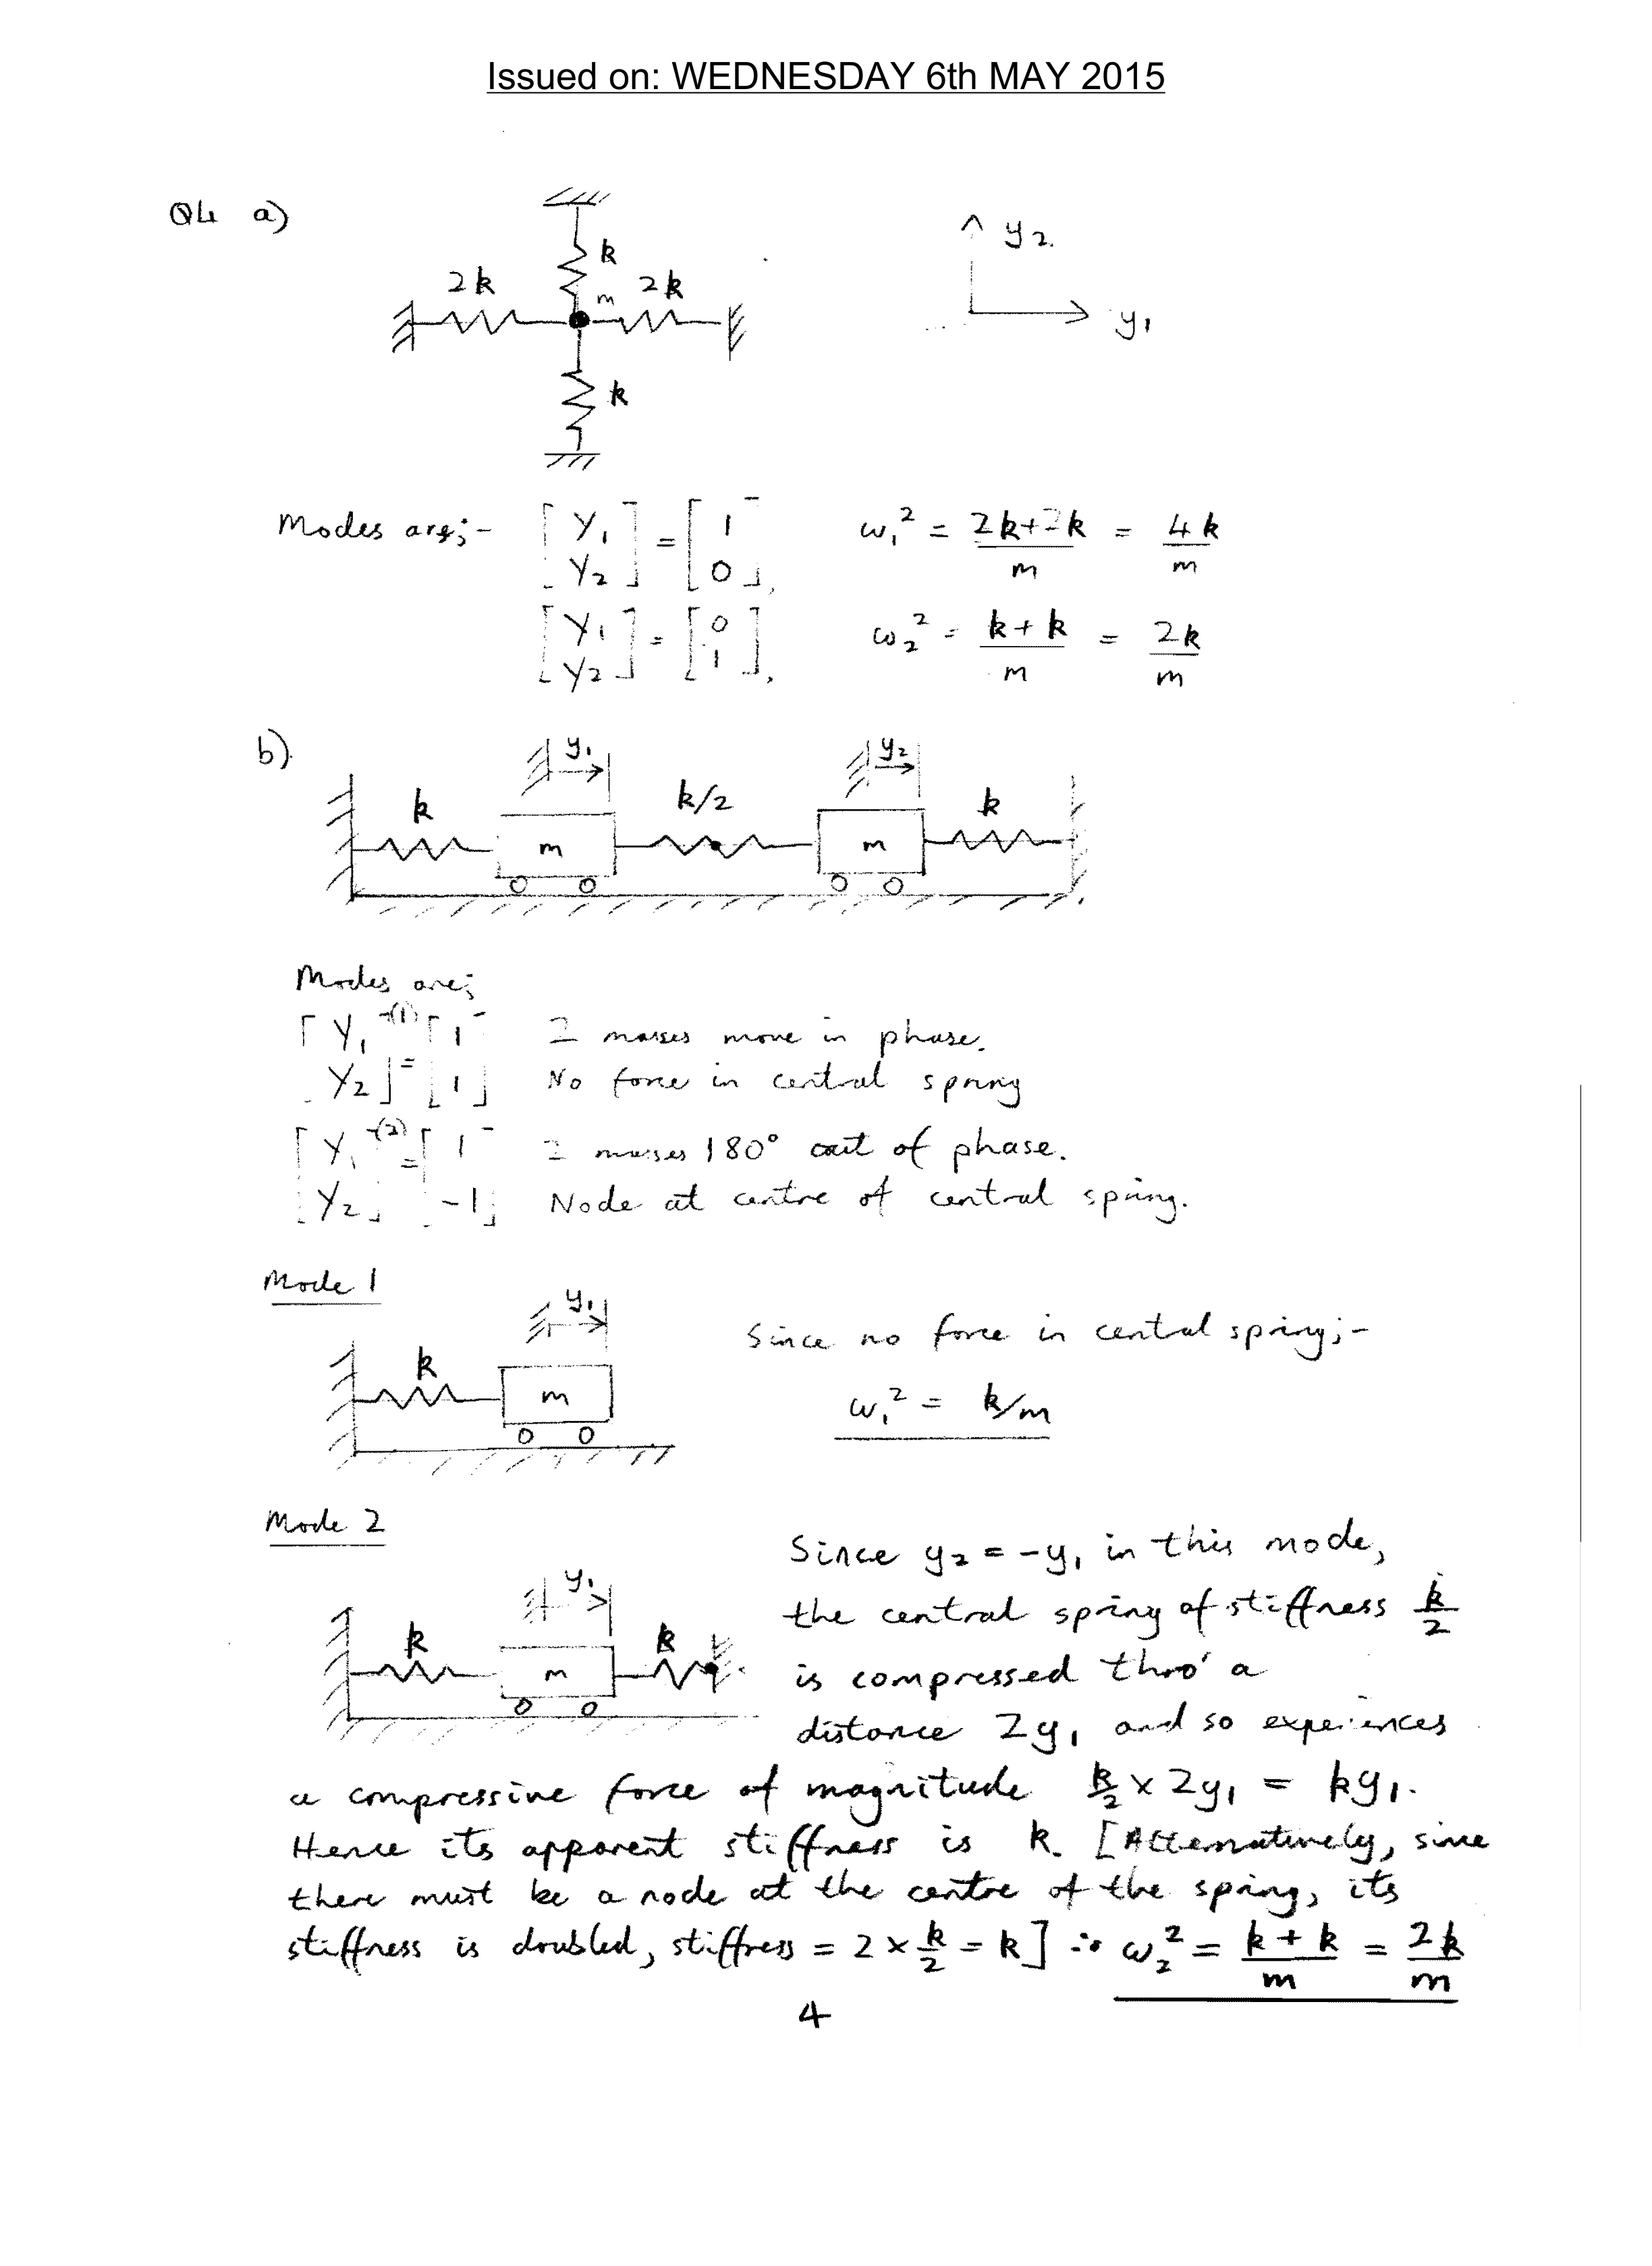 Issued on: WEDNESDAY 6th MAY 2015
Q4 a)
k
2k
m
2k
k
y₂
y₁
Modes are;- [Y₁ Y₂] = [1 0], ω₁² = (2k+2k)/m = 4k/m
[Y₁ Y₂] = [0 1], ω₂² = (k+k)/m = 2k/m
b)
y₁ y₂
k m k/2 m k
Modes are;
[Y₁ Y₂]⁽¹⁾ = [1 1] 2 masses move in phase.
No force in central spring
[Y₁ Y₂]⁽²⁾ = [1 -1] 2 masses 180° out of phase.
Node at centre of central spring.
Mode 1
y₁
k m
Since no force in central spring;-
ω₁² = k/m
Mode 2
y₁
k m k
Since y₂ = -y₁ in this mode,
the central spring of stiffness k/2
is compressed thro' a
distance 2y₁ and so experiences
a compressive force of magnitude k/2 × 2y₁ = ky₁.
Hence its apparent stiffness is k. [Alternatively, since
there must be a node at the centre of the spring, its
stiffness is doubled, stiffness = 2 × k/2 = k] ∴ ω₂² = (k+k)/m = 2k/m
4